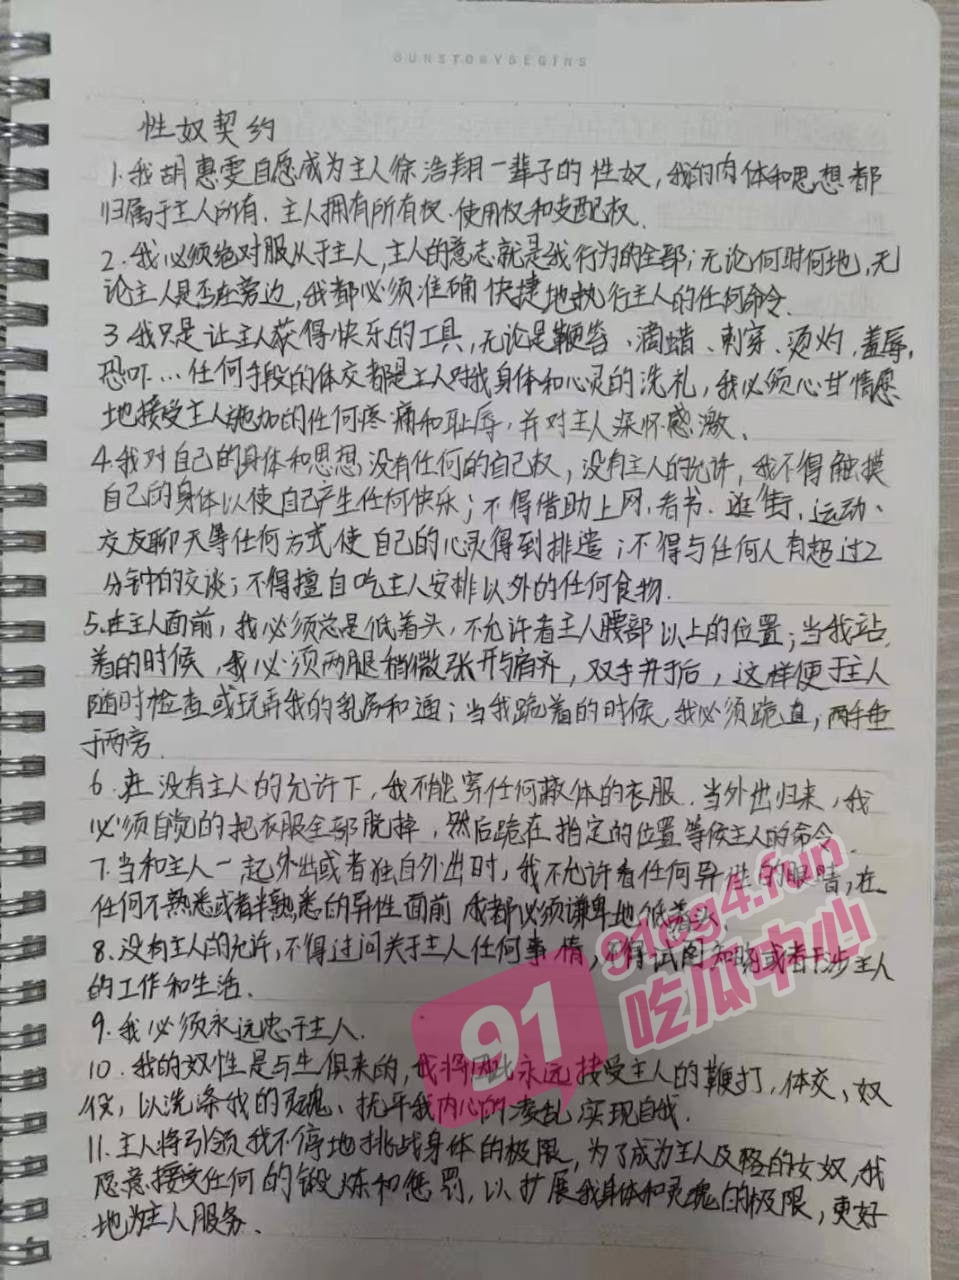 OUNSTORYBEGINS
性奴契约
1.我胡惠雯自愿成为主人徐浩翔一辈子的性奴，我的肉体和思想都
归属于主人所有.主人拥有所有权.使用权和支配权.
2.我必须绝对服从于主人,主人的意志就是我行为的全部;无论何时何地,无
论主人是否在旁边,我都必须准确快捷地执行主人的任何命令.
3.我只是让主人获得快乐的工具,无论是鞭笞、滴蜡、刺穿、烫灼.羞辱,
恐吓...任何手段的体交都是主人对我身体和心灵的洗礼，我必须心甘情愿
地接受主人施加的任何疼痛和耻辱，并对主人深怀感激、
4.我对自己的身体和思想没有任何的自己权，没有主人的允许，我不得触摸
自己的身体以使自己产生任何快乐；不得借助上网.看书.逛街.运动、
交友聊天等任何方式使自己的心灵得到排遣；不得与任何人有超过2
分钟的交谈；不得擅自吃主人安排以外的任何食物.
5.在主人面前，我必须总是低着头，不允许看主人腰部以上的位置；当我站
着的时候，我必须两腿稍微张开与肩齐，双手并于后，这样便于主人
随时检查或玩弄我的乳房和通；当我跪着的时候,我必须跪直，两手垂
于两旁.
6.在没有主人的允许下，我不能穿任何蔽体的衣服.当外出归来，我
必须自觉的把衣服全部脱掉，然后跪在指定的位置等侯主人的命令.
7.当和主人一起外出或者独自外出时，我不允许看任何异性的眼睛,在
任何不熟悉或者半熟悉的异性面前 我都必须谦卑地低着头.
8.没有主人的允许,不得过问关于主人任何事情,不得试图知晓或者干涉主人
的工作和生活.
9.我必须永远忠于主人.
10.我的奴性是与生俱来的,我将因此永远接受主人的鞭打,体交、奴
役，以洗涤我的灵魂、抚平我内心的凌乱,实现自我.
11.主人将引领我不停地挑战身体的极限，为了成为主人及格的女奴,我
愿意接受任何的锻炼和惩罚,以扩展我身体和灵魂的极限，更好
地为主人服务.
91
91cg4.fun
吃瓜中心